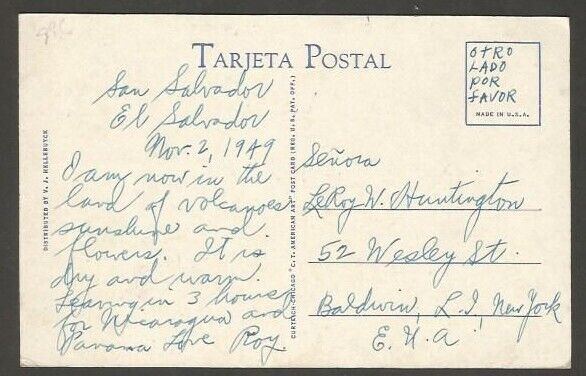 TARJETA POSTAL
San Salvador
El Salvador
Nov. 2, 1949
I am now in the
land of volcanoes
sunshine and
flowers. It is
dry and warm.
Leaving in 3 hours
for Nicaragua and
Panama Love Roy
DISTRIBUTED BY V. J. HELLEBUYCK
CURTEICH-CHICAGO "C.T. AMERICAN ART" POST CARD (REG. U.S. PAT. OFF.)
OTRO
LADO
POR
FAVOR
MADE IN U.S.A.
Señora
LeRoy W. Huntington
52 Wesley St.
Baldwin, L.I., New York
E.U.A.